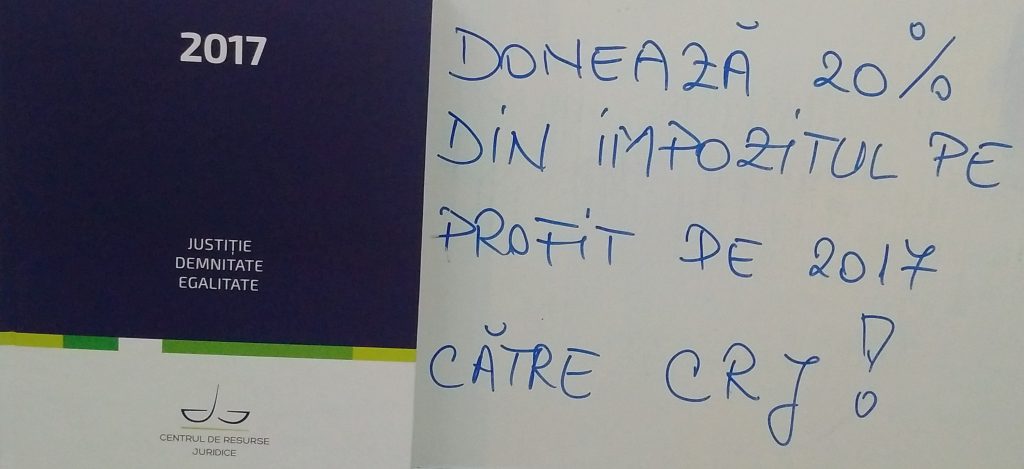 2017
JUSTIȚIE
DEMNITATE
EGALITATE
CENTRUL DE RESURSE
JURIDICE
DONEAZĂ 20%
DIN IMPOZITUL PE
PROFIT DE 2017
CĂTRE CRJ!